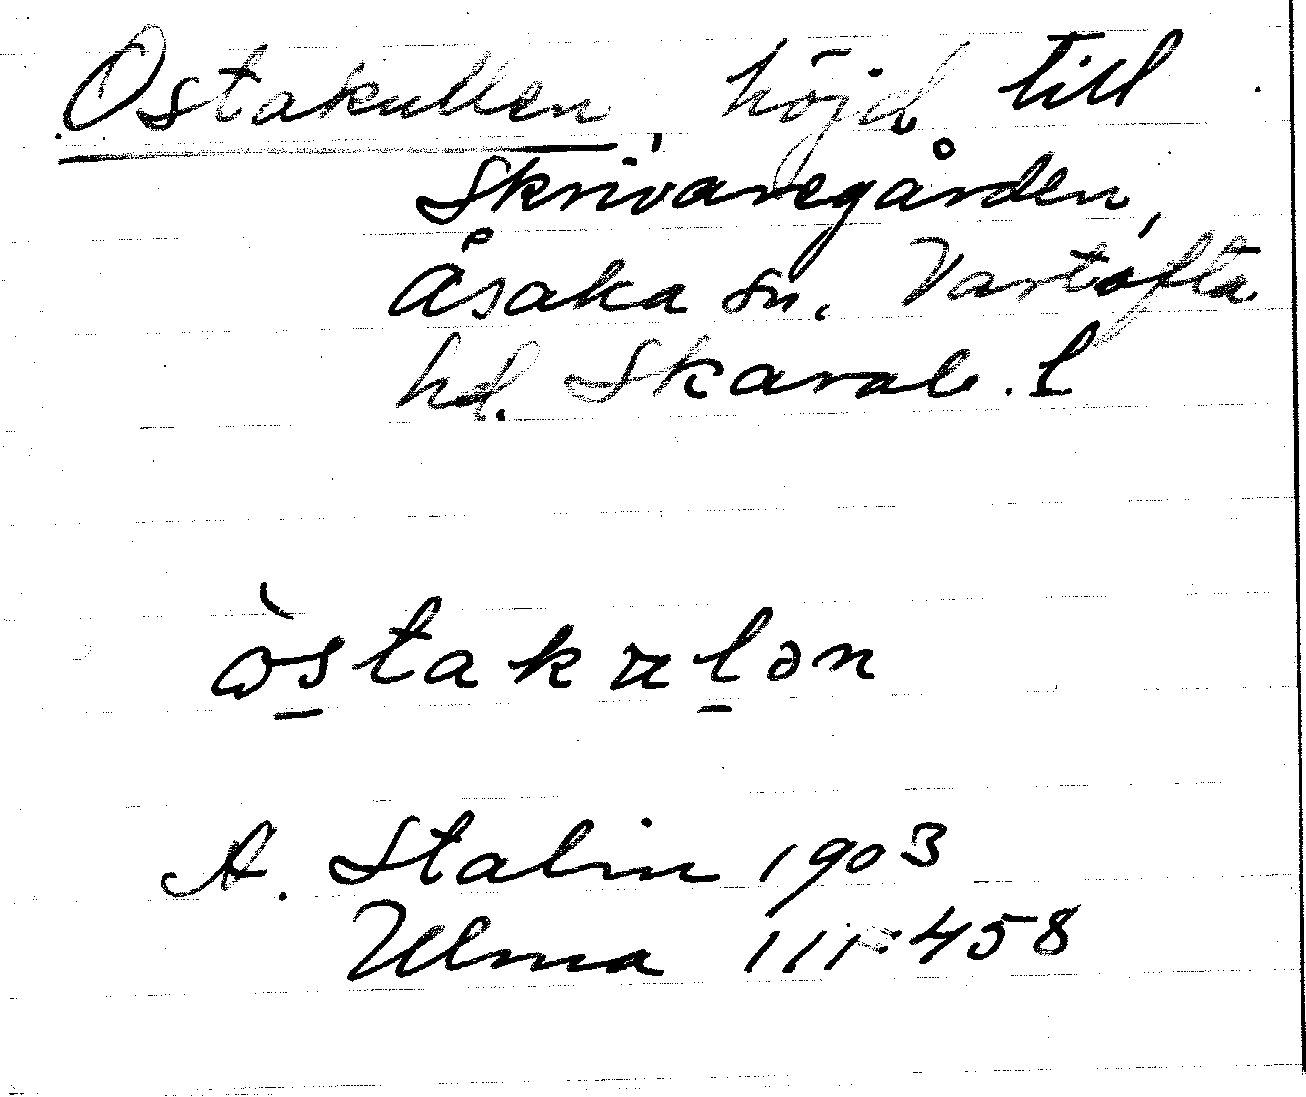 Ostakullen, höjd till
Skrivaregården,
Åsaka sn. Vartofta
hd. Skarab. l
òstakulən
A. Stalin 1903
Ulma 111:458